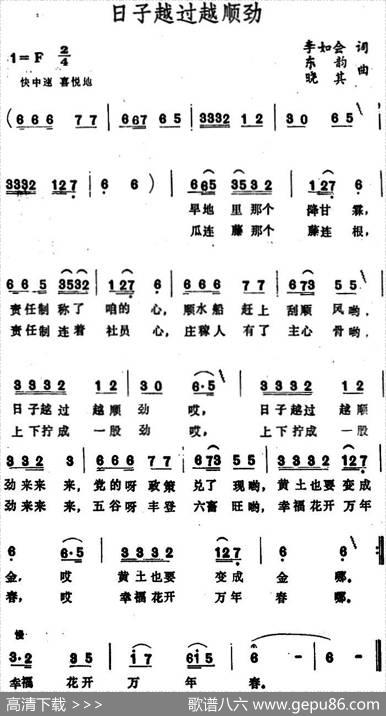 日子越过越顺劲
1=F 2/4
李如会 词
东韵
晓其 曲
快中速 喜悦地
(6 6 6 7 7 | 6 6 7 6 5 | 3332 1 2 | 3 0 6 5 |
3332 1 2 7 | 6 6 ) | 6 6 5 3 5 3 2 | 1 2 7 6 |
旱地里那个 降甘霖,
瓜连藤那个 藤连根,
6 6 5 3532 | 1 2 7 6 | 6 6 6 7 7 | 6 7 3 5 5 |
责任制称了 咱的心, 顺水船 赶上 刮顺风哟,
责任制连着 社员心, 庄稼人 有了 主心骨哟,
3 3 3 2 1 2 | 3 0 (6·5) | 3 3 3 2 1 2 |
日子越过 越顺 劲 哎, 日子越过 越顺
上下拧成 一股 劲 哎, 上下拧成 一股
3 3 2 3 | 6 6 6 7 7 | 6 7 3 5 5 | 3 3 3 2 1 2 7 |
劲来来 来, 党的呀 政策 兑了现哟, 黄土也要 变成
劲来来 来, 五谷呀 丰登 六畜旺哟, 幸福花开 万年
6 6·5 | 3 3 3 2 1 2 7 | 6 6 :|
金, 哎 黄土也要 变成 金 哪。
春, 哎 幸福花开 万年 春 哪。
慢
3·2 3 2 | 1 7 6 1 5 | 6 — | 6 0 ‖
幸福 花开 万 年 春。
高清下载 >>>
歌谱八六 www.gepu86.com